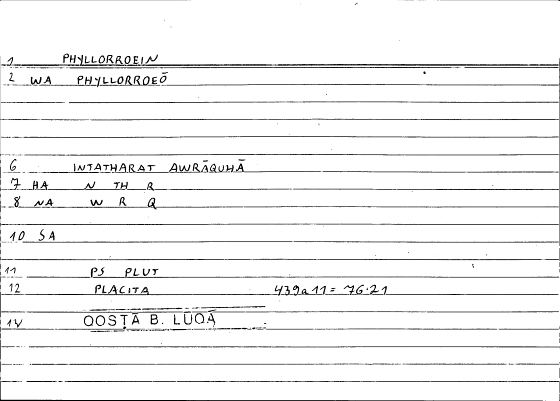 1 PHYLLORROEIN
2 WA PHYLLORROEŌ
6 INTATHARAT AWRĀQUHĀ
7 HA N TH R
8 NA W R Q
10 SA
11 PS PLUT
12 PLACITA 439a11 = 76.21
14 QOSṬĀ B. LŪQĀ